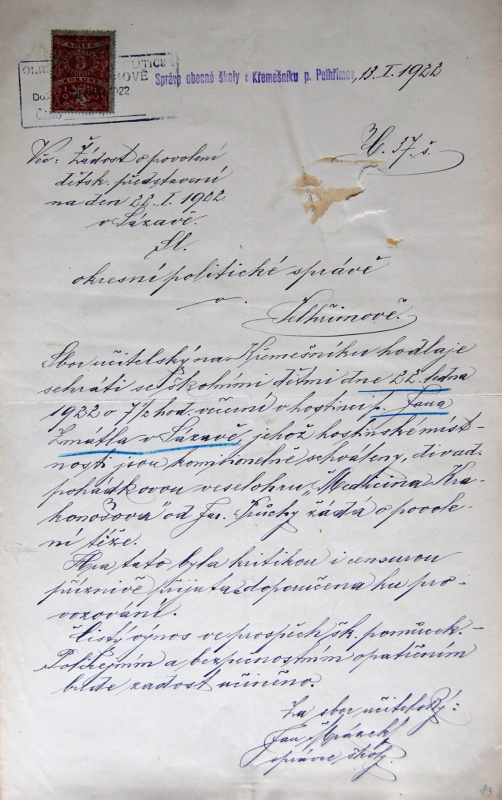 KOLEK
3
KORUNY
1922
Správa obecné školy v Křemešníku p. Pelhřimov, 13. I. 1922
Věc: Žádost o povolení
dětsk. představení
na den 22. I. 1922
v Sázavě.
Sl.
okresní politické správě
v
Pelhřimově.
Sbor učitelský na Křemešníku hodlá
sehráti se školními dětmi dne 22. ledna
1922 o 7 1/2 hod. večerní v hostinci p. Jana
Zmátla v Sázavě, jehož hostinské míst-
nosti jsou komisionelně schváleny, divad.
pohádkovou veselohru „Medicina Kra-
konošova" od Jar. Průchy a žádá o povole-
ní téže.
Hra tato byla kritikou i censurou
příznivě přijata a doporučena ku pro-
vozování.
Čistý výnos ve prospěch šk. pomůcek. -
Policejním a bezpečnostním opatřením
bude zadost učiněno.
Za sbor učitelský:
Jan
správce školy.
13